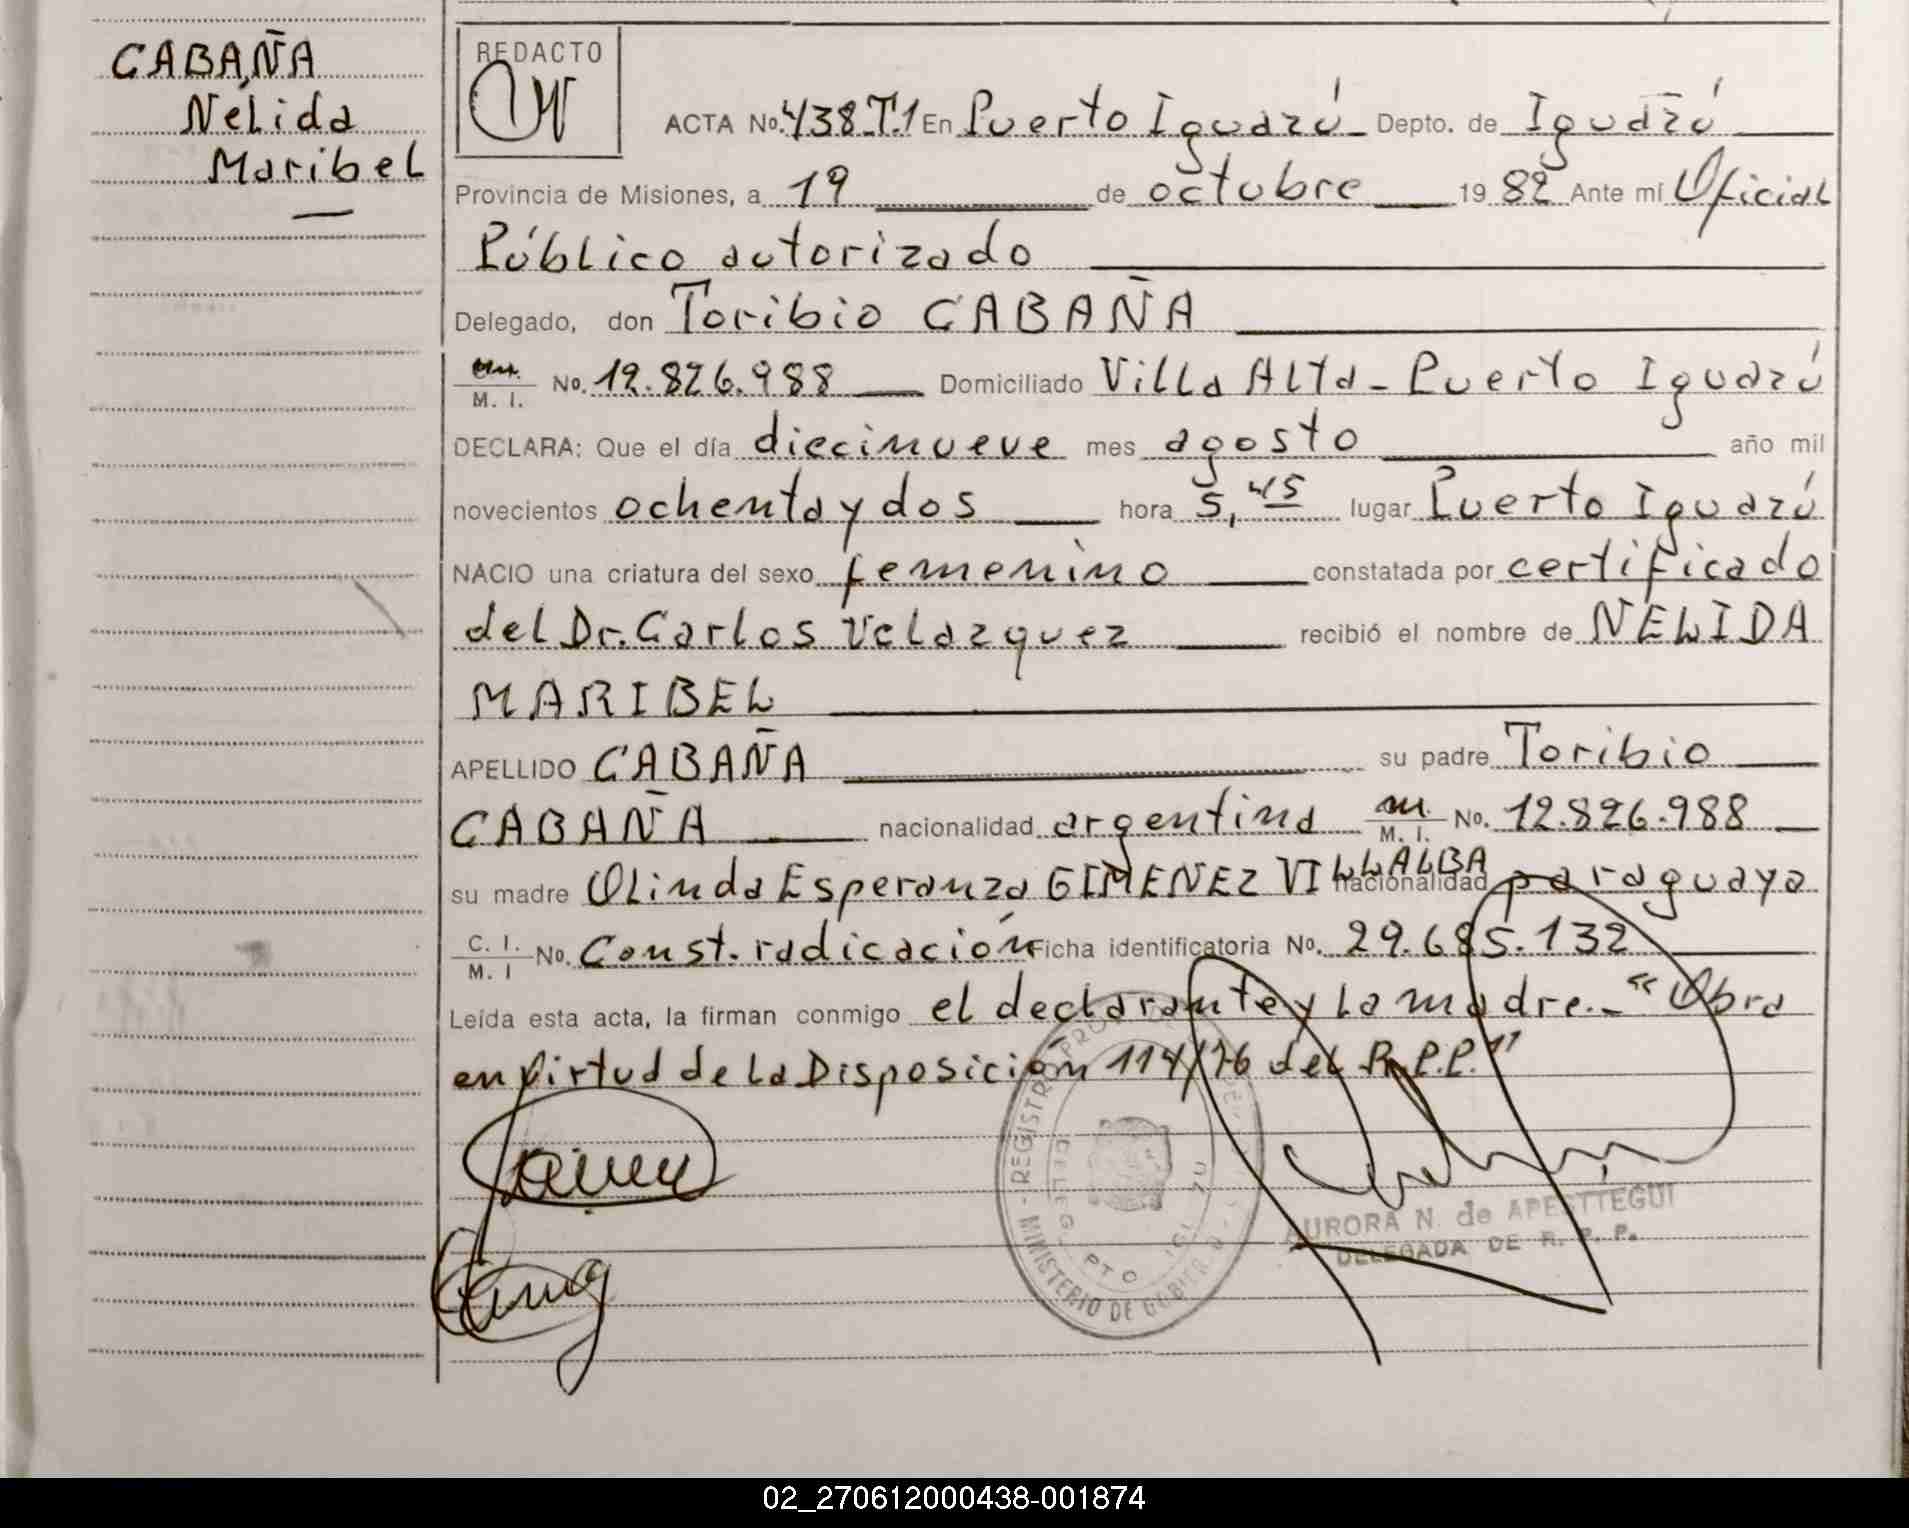 CABAÑA
Nélida
Maribel
REDACTO
ACTA No. 438 T.1 En Puerto Iguazú Depto. de Iguazú
Provincia de Misiones, a 19 de octubre 1982 Ante mí Oficial
Público autorizado
Delegado, don Toribio CABAÑA
M. I. No. 12.826.988 Domiciliado Villa Alta - Puerto Iguazú
DECLARA: Que el día diecinueve mes agosto año mil
novecientos ochenta y dos hora 5,45 lugar Puerto Iguazú
NACIO una criatura del sexo femenino constatada por certificado
del Dr. Carlos Velazquez recibió el nombre de NELIDA
MARIBEL
APELLIDO CABAÑA su padre Toribio
CABAÑA nacionalidad argentina M. I. No. 12.826.988
su madre Olinda Esperanza GIMENEZ VILLALBA nacionalidad paraguaya
C. I. M. I No. Const. radicación Ficha identificatoria No. 29.685.132
Leída esta acta, la firman conmigo el declarante y la madre.- "Obra
en virtud de la Disposición 114/76 del R.P.P."
REGISTRO PROV
DELEG.
PTO IG ZU
MINISTERIO DE GOBIER
AURORA N. de APESTTEGUI
DELEGADA DE R. P. P.
02_270612000438-001874